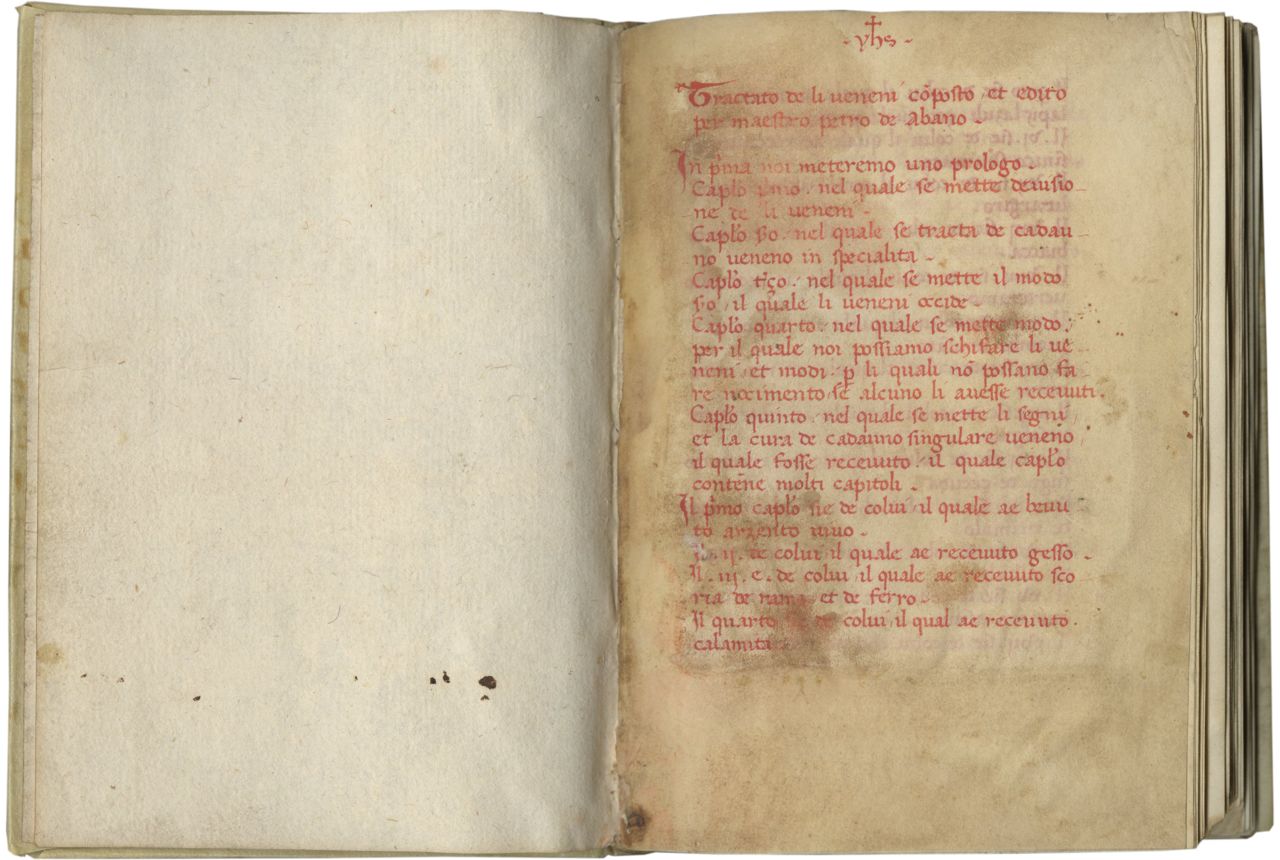 yhs
Tractato de li veneni cõposto et edito
per maestro petro de Abano
In p̃ma noi meteremo uno prologo
Caplo p̃mo nel quale se mette deiusio
ne de li veneni
Caplo s̃o nel quale se tracta de cadau
no veneno in specialita
Caplo t̃ço nel quale se mette il modo
s̃o il quale li veneni occide
Caplo quarto nel quale se mette modo
per il quale noi possiamo schifare li ve
neni et modi p̱ li quali nõ possano fa
re nocimento se alcuno li auesse receuuti
Caplo quinto nel quale se mette li segni
et la cura de cadauno singulare veneno
il quale fosse receuuto il quale caplo
contẽne molti capitoli
Il p̃mo caplo sie de colui il quale ae beuu
to argento uiuo
Il .ii. de colui il quale ae receuuto gesso
Il .iii. e de colui il quale ae receuuto sco
ria de rame et de ferro
Il quarto sie de colui il qual ae receuuto
calamita